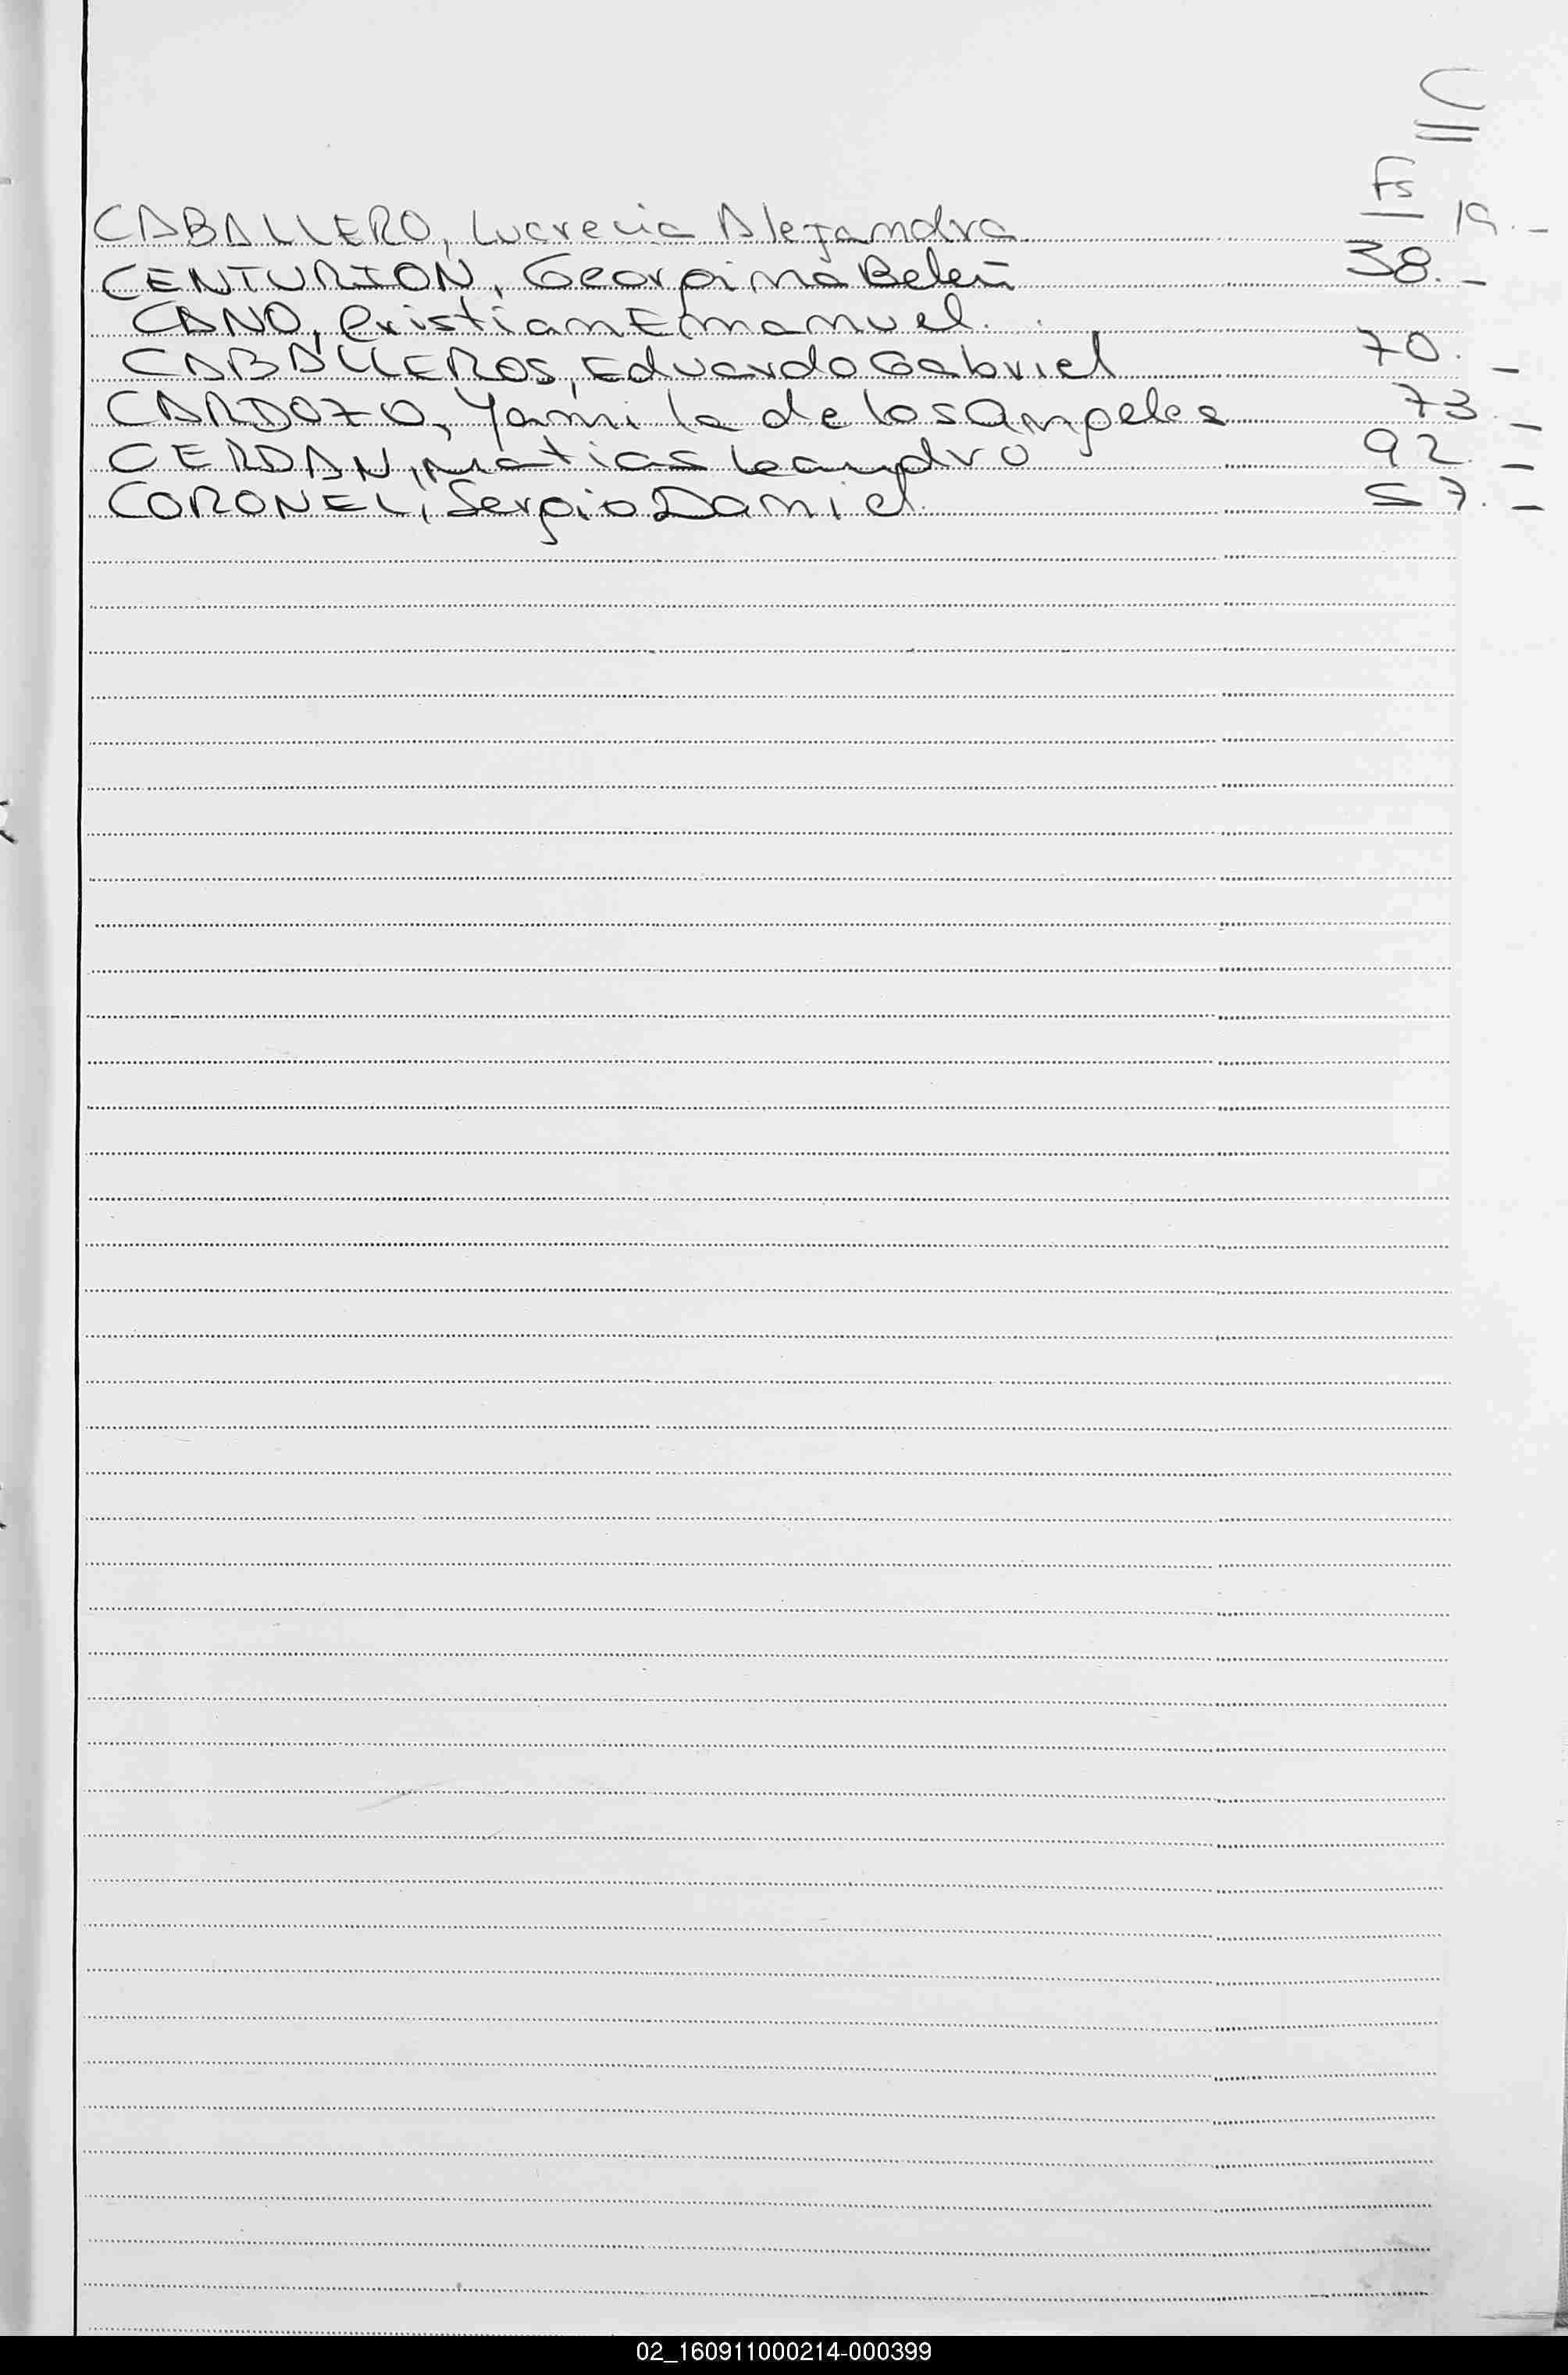 C
Fs
CABALLERO, Lucrecia Alejandra 19.-
CENTURION, Georgina Belén 38.-
CANO, Cristian Emmanuel.
CABALLEROS, Eduardo Gabriel 70.-
CARDOZO, Yamila de los Angeles 73.-
CERDAN, Matias Leandro 92.-
CORONEL, Sergio Daniel. 57.-
02_160911000214-000399